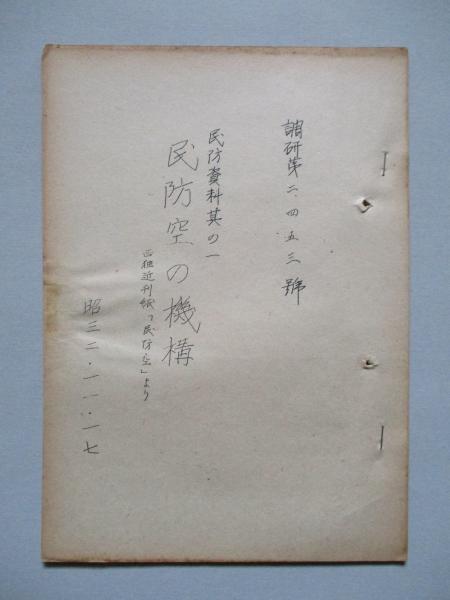 調研第二、四五三號
民防資料其の一
民防空の機構
西独近刊紙「民防空」より
昭三二・一一・一七